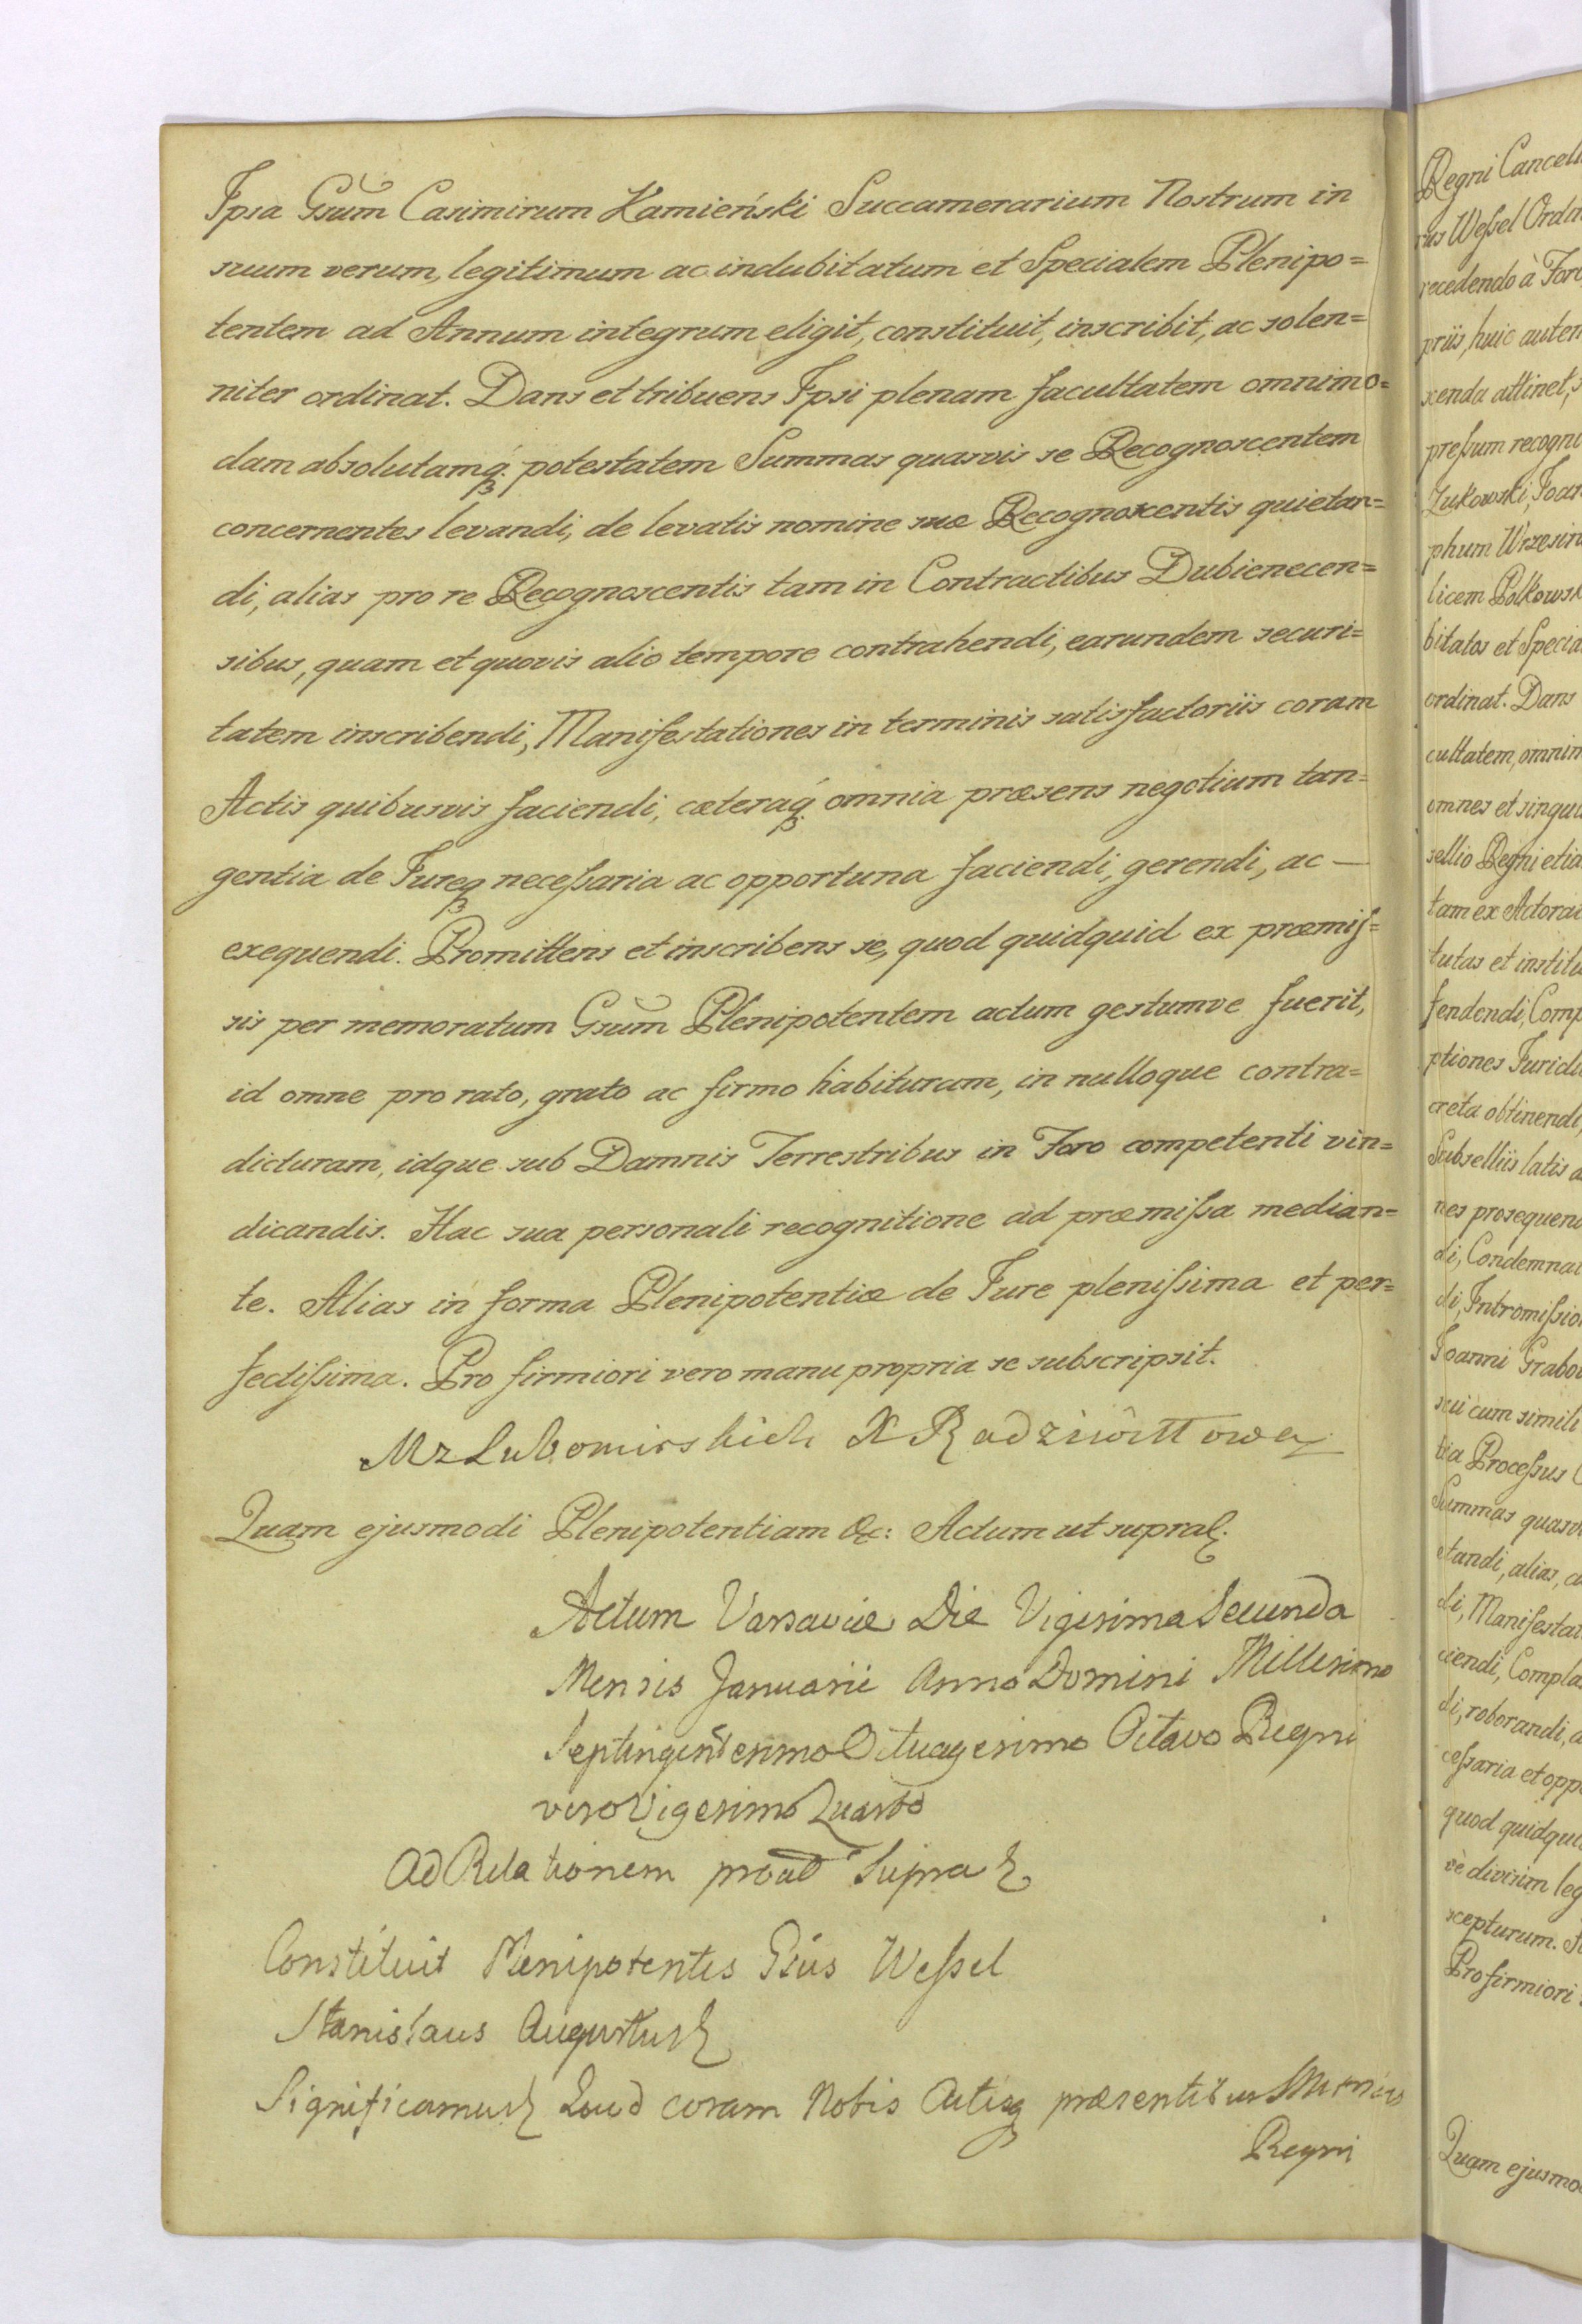 Ipsa Gsum Casimirum Kamieński Succamerarium Nostrum in
suum verum, legitimum ac indubitatum et Specialem Plenipo=
tentem ad Annum integrum eligit, constituit, inscribit, ac solen=
niter ordinat. Dans et tribuens Ipsi plenam facultatem omnimo=
dam absolutamq́. potestatem Summas quasvis se Recognoscentem
concernentes levandi, de levatis nomine suæ Recognoscentis quietan=
di, alias pro re Recognoscentis tam in Contractibus Dubienecen=
sibus, quam et quovis alio tempore contrahendi, earundem securi=
tatem inscribendi, Manifestationes in terminis satisfactoriis coram
Actis quibusvis faciendi, cæteraq́. omnia præsens negotium tan=
gentia de Jureq necessaria ac opportuna faciendi, gerendi, ac —
exequendi. Promittens et inscribens se, quod quidquid ex præmis=
sis per memoratum Gsum Plenipotentem actum gestumve fuerit,
id omne pro rato, grato ac firmo habituram, in nulloque contra=
dicturam, idque sub Damnis Terrestribus in Foro competenti vin=
dicandis. Hac sua personali recognitione ad præmissa median=
te. Alias in forma Plenipotentiæ de Jure plenissima et per=
fectissima. Pro firmiori vero manu propria se subscripsit.
M z Lubomirskich X Radziwiłłowa
Quam ejusmodi Plenipotentiam &c: Actum ut supra
Actum Varsaviæ Die Vigesima Secunda
Mensis Januarii Anno Domini Millesimo
Septingentesimo Octuagesimo Octavo Regni
vero Vigesimo Quarto
Ad Relationem prout Supra
Constituit Plenipotentes Gsus Wessel
Stanislaus Augustus
Significamus Quod coram Nobis Actisq præsentibus
Regni
Regni Cancell
rus Wessel Ordi
recedendo à Foro
priis, huic autem
xenda attinet, s
pressum recogn
Zukowski, Joan
phum Wrzesin
licem Polkowsk
bitatos et Specia
ordinat. Dans
cultatem, omnim
omnes et singul
sellio Regni etia
tam ex Actora
tutas et institu
fendendi, Comp
ptiones Juridi
creta obtinendi,
Subselliis latis a
nes prosequen
di, Condemnat
di, Intromissio
Joanni Grabo
sui cum simili
tia Processus
Summas quasv
etandi, alias, c
di, Manifestat
ciendi, Compla
di, roborandi, a
cessaria et opp
quod quidqui
vè divisim leg
scepturum.
Pro firmiori
Quam ejusmo